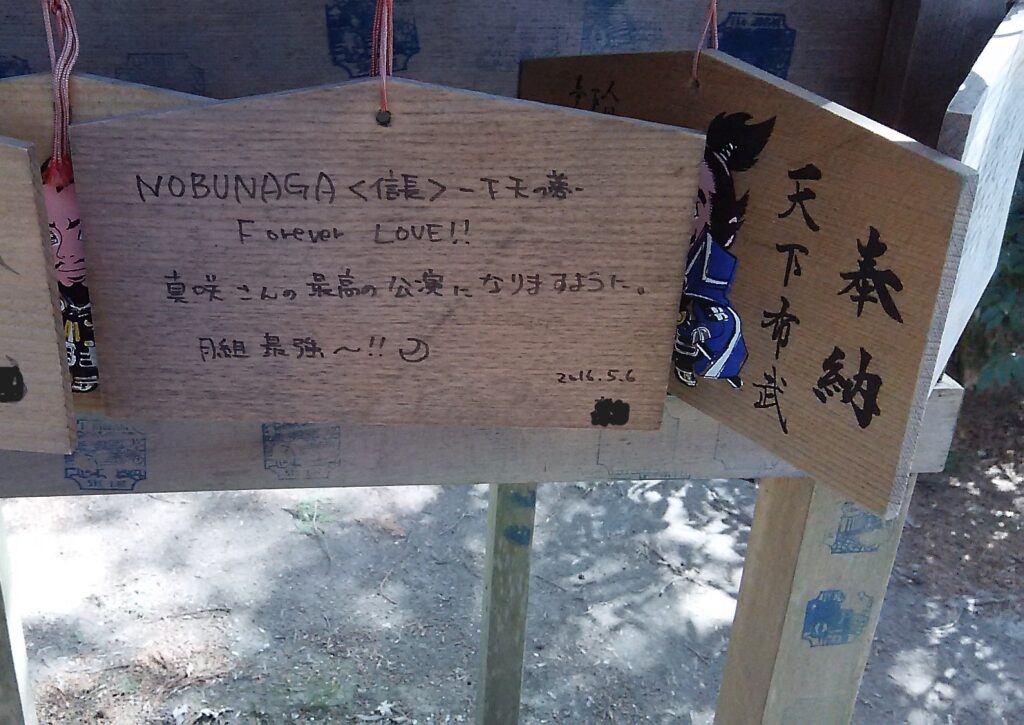 NOBUNAGA <信長> -下天の夢-
Forever LOVE!!
真咲さんの最高の公演になりますように。
月組 最強～!!
2016.5.6
奉納
天下布武